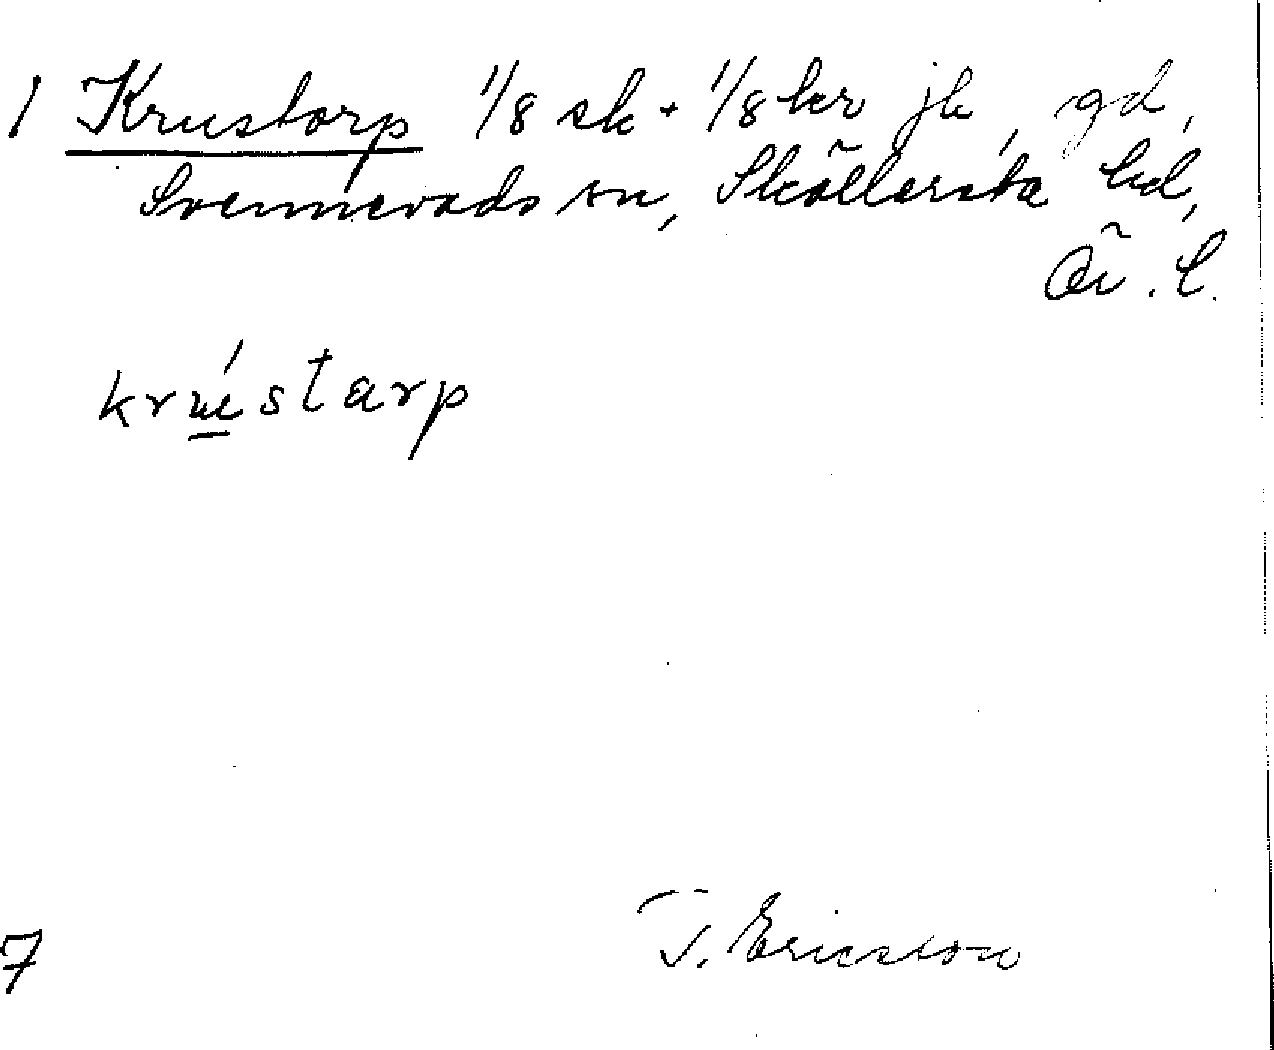 1 Krustorp 1/8 sk + 1/8 kr jk, gd,
Svennevads sn, Sköllersta hd,
Ör. l.
krústarp
T. Ericsson
7